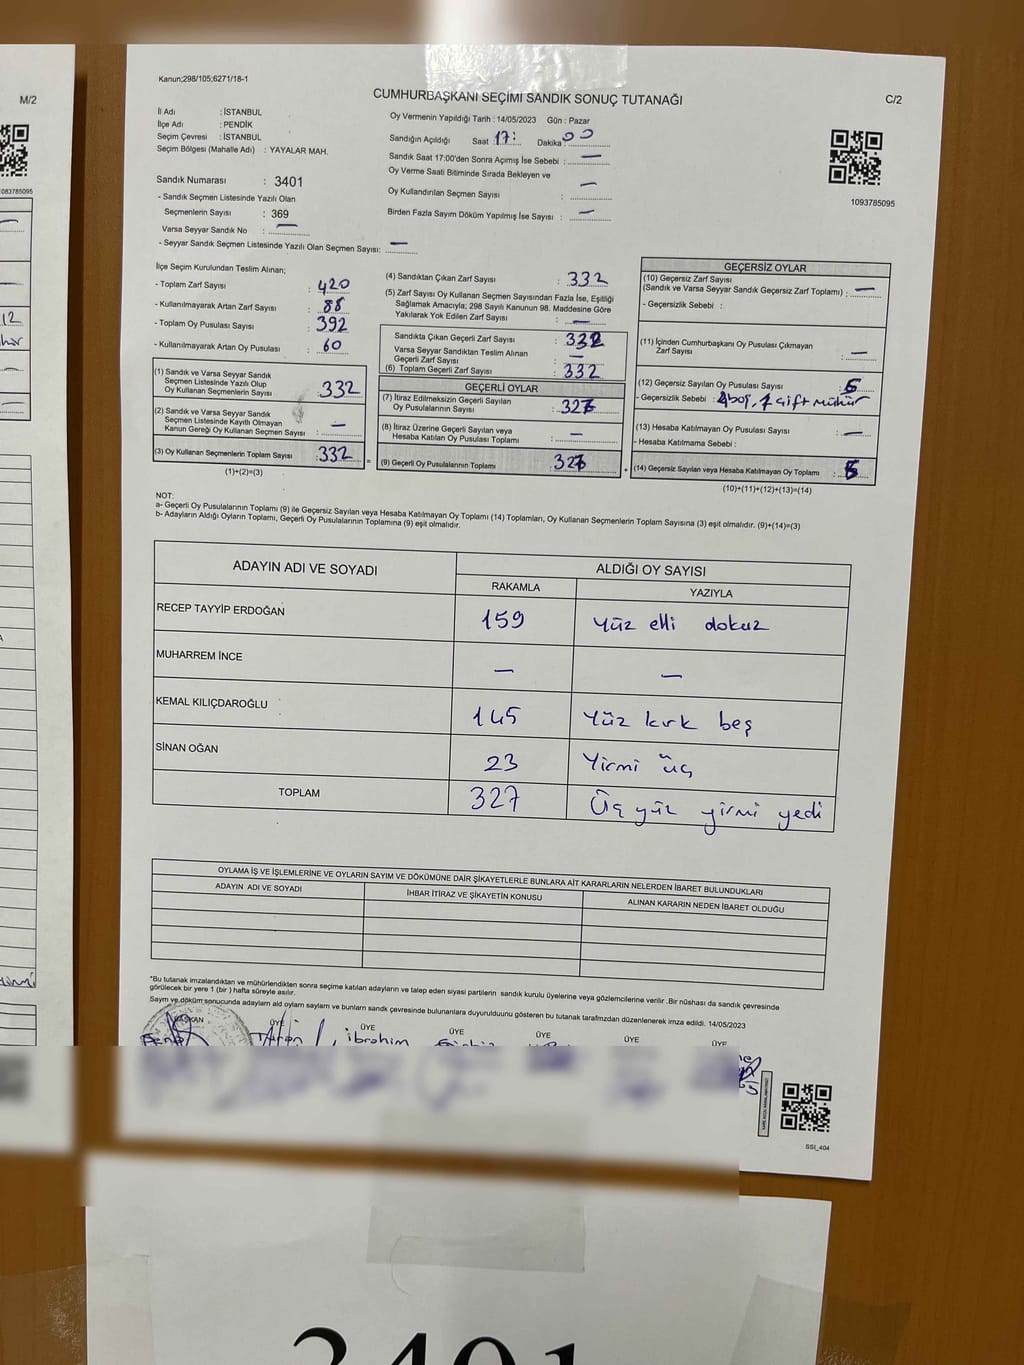 Kanun;298/105;6271/18-1
M/2
CUMHURBAŞKANI SEÇİMİ SANDIK SONUÇ TUTANAĞI
C/2
İl Adı : İSTANBUL
İlçe Adı : PENDİK
Seçim Çevresi : İSTANBUL
Seçim Bölgesi (Mahalle Adı) : YAYALAR MAH.
Sandık Numarası : 3401
- Sandık Seçmen Listesinde Yazılı Olan
Seçmenlerin Sayısı : 369
Varsa Seyyar Sandık No : —
- Seyyar Sandık Seçmen Listesinde Yazılı Olan Seçmen Sayısı: —
Oy Vermenin Yapıldığı Tarih : 14/05/2023 Gün : Pazar
Sandığın Açıldığı Saat 17: Dakika 00
Sandık Saat 17:00'den Sonra Açımış İse Sebebi : —
Oy Verme Saati Bitiminde Sırada Bekleyen ve
Oy Kullandırılan Seçmen Sayısı : —
Birden Fazla Sayım Döküm Yapılmış İse Sayısı : —
1093785095
İlçe Seçim Kurulundan Teslim Alınan;
- Toplam Zarf Sayısı : 420
- Kullanılmayarak Artan Zarf Sayısı : 88
- Toplam Oy Pusulası Sayısı : 392
- Kullanılmayarak Artan Oy Pusulası : 60
(1) Sandık ve Varsa Seyyar Sandık
Seçmen Listesinde Yazılı Olup
Oy Kullanan Seçmenlerin Sayısı : 332
(2) Sandık ve Varsa Seyyar Sandık
Seçmen Listesinde Kayıtlı Olmayan
Kanun Gereği Oy Kullanan Seçmen Sayısı : —
(3) Oy Kullanan Seçmenlerin Toplam Sayısı : 332
(1)+(2)=(3)
(4) Sandıktan Çıkan Zarf Sayısı : 332
(5) Zarf Sayısı Oy Kullanan Seçmen Sayısından Fazla İse, Eşitliği
Sağlamak Amacıyla; 298 Sayılı Kanunun 98. Maddesine Göre
Yakılarak Yok Edilen Zarf Sayısı : —
Sandıkta Çıkan Geçerli Zarf Sayısı : 332
Varsa Seyyar Sandıktan Teslim Alınan
Geçerli Zarf Sayısı : —
(6) Toplam Geçerli Zarf Sayısı : 332
GEÇERLİ OYLAR
(7) İtiraz Edilmeksizin Geçerli Sayılan
Oy Pusulalarının Sayısı : 327
(8) İtiraz Üzerine Geçerli Sayılan veya
Hesaba Katılan Oy Pusulası Toplamı : —
(9) Geçerli Oy Pusulalarının Toplamı : 327
GEÇERSİZ OYLAR
(10) Geçersiz Zarf Sayısı
(Sandık ve Varsa Seyyar Sandık Geçersiz Zarf Toplamı) : —
- Geçersizlik Sebebi :
(11) İçinden Cumhurbaşkanı Oy Pusulası Çıkmayan
Zarf Sayısı : —
(12) Geçersiz Sayılan Oy Pusulası Sayısı : 5
- Geçersizlik Sebebi : 4boş, 1 çift mühür
(13) Hesaba Katılmayan Oy Pusulası Sayısı : —
- Hesaba Katılmama Sebebi :
(14) Geçersiz Sayılan veya Hesaba Katılmayan Oy Toplamı : 5
(10)+(11)+(12)+(13)=(14)
NOT:
a- Geçerli Oy Pusulalarının Toplamı (9) ile Geçersiz Sayılan veya Hesaba Katılmayan Oy Toplamı (14) Toplamları, Oy Kullanan Seçmenlerin Toplam Sayısına (3) eşit olmalıdır. (9)+(14)=(3)
b- Adayların Aldığı Oyların Toplamı, Geçerli Oy Pusulalarının Toplamına (9) eşit olmalıdır.
ADAYIN ADI VE SOYADI ALDIĞI OY SAYISI
RAKAMLA YAZIYLA
RECEP TAYYİP ERDOĞAN 159 Yüz elli dokuz
MUHARREM İNCE — —
KEMAL KILIÇDAROĞLU 145 Yüz kırk beş
SİNAN OĞAN 23 Yirmi üç
TOPLAM 327 Üç yüz yirmi yedi
OYLAMA İŞ VE İŞLEMLERİNE VE OYLARIN SAYIM VE DÖKÜMÜNE DAİR ŞİKAYETLERLE BUNLARA AİT KARARLARIN NELERDEN İBARET BULUNDUKLARI
ADAYIN ADI VE SOYADI İHBAR İTİRAZ VE ŞİKAYETİN KONUSU ALINAN KARARIN NEDEN İBARET OLDUĞU
*Bu tutanak imzalandıktan ve mühürlendikten sonra seçime katılan adayların ve talep eden siyasi partilerin sandık kurulu üyelerine veya gözlemcilerine verilir .Bir nüshası da sandık çevresinde
görülecek bir yere 1 (bir ) hafta süreyle asılır.
Sayım ve döküm sonucunda adayların ald oyların sayların ve bunların sandk çevresinde bulunanlara duyurulduunu gösteren bu tutanak tarafımzdan düzenlenerek imza edildi. 14/05/2023
BAŞKAN ÜYE ÜYE ÜYE ÜYE ÜYE ÜYE
İbrahim
SSI_404
3401